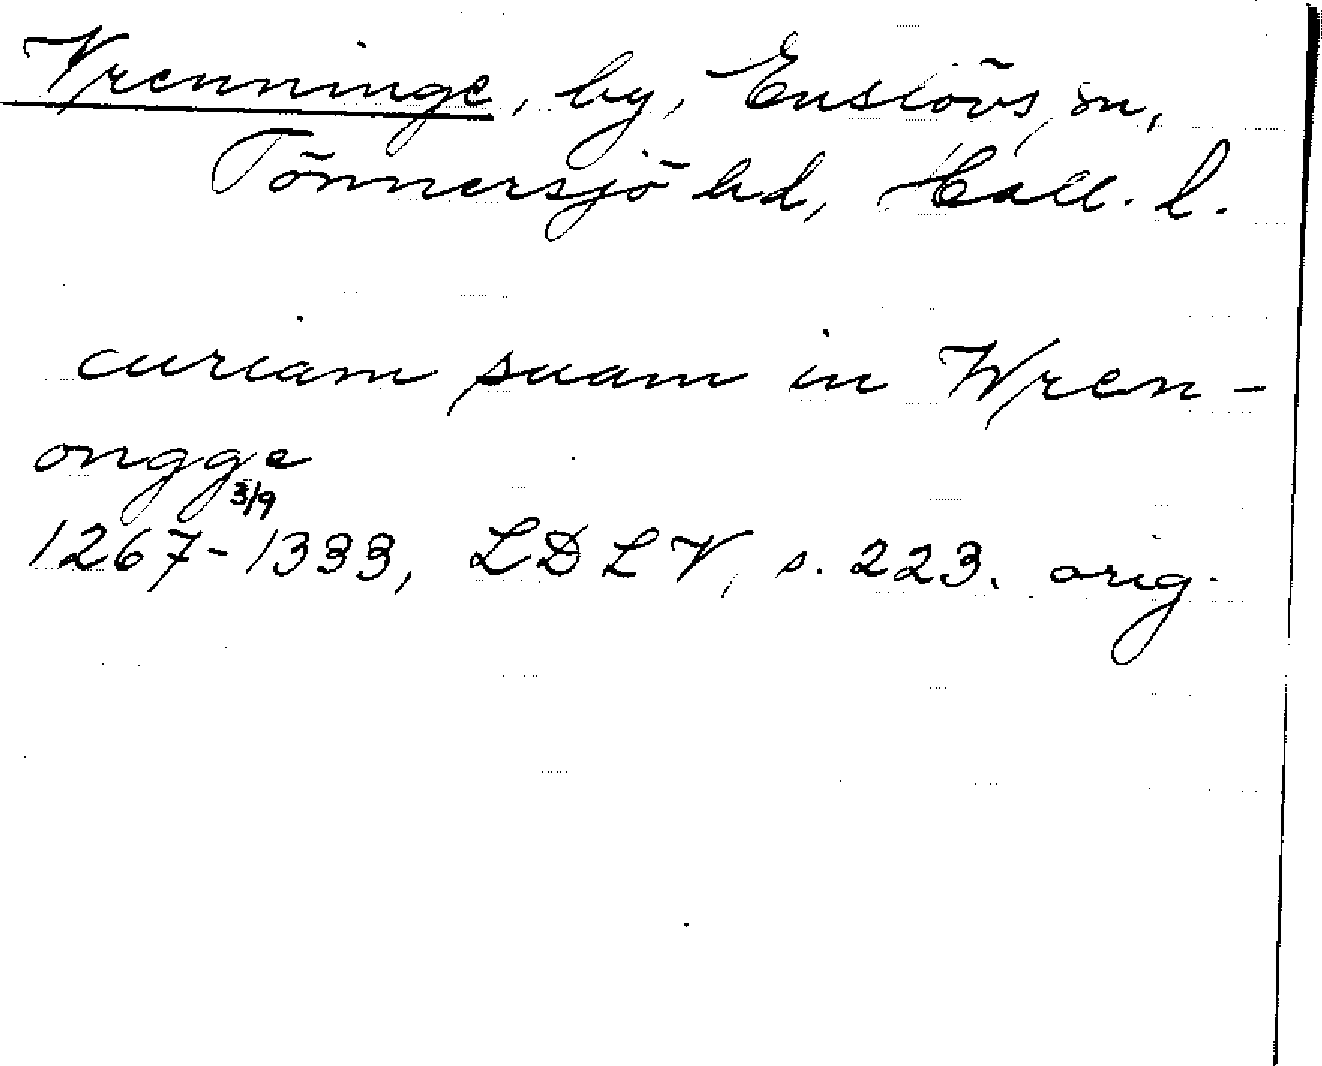 Vrenninge, by, Enslövs sn,
Tönnersjö hd, Hall. l.
curiam suam in Wren-
ongge
3/9
1267-1333, LDLV, s. 223. orig.